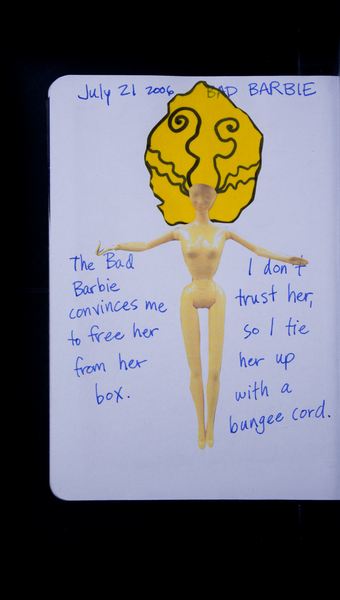 July 21 2006 BAD BARBIE
The Bad
Barbie
convinces me
to free her
from her
box.
I don't
trust her,
so I tie
her up
with a
bungee cord.